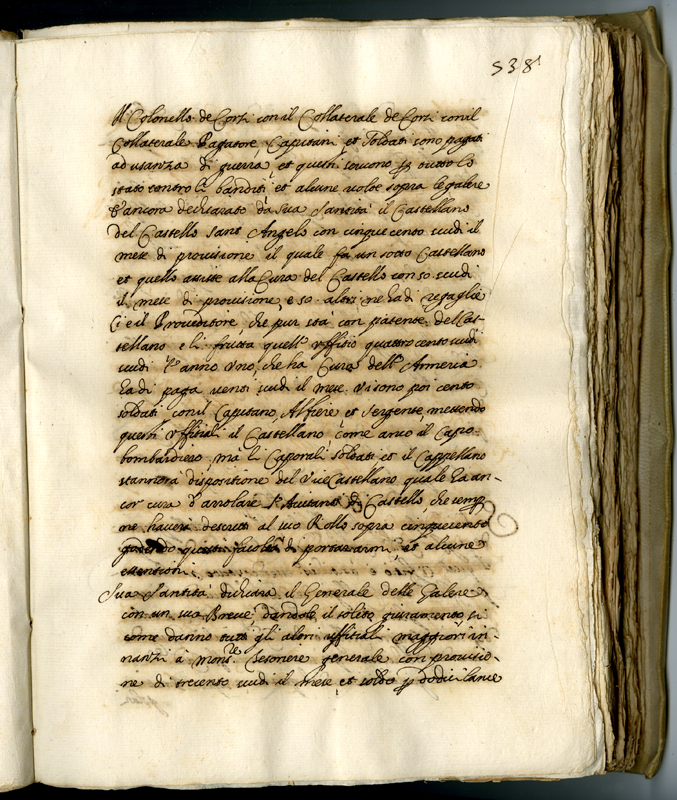 538
Il Colonello de Corsi con il Collaterale de Corsi con il
Collaterale Pagatore, Capitani et Soldati sono pagati
ad usanza di guerra, et questi scorrono p tutto lo
stato contro li banditi et alcune volte sopra le galere
E ancora dechiarato da Sua Santità il Castellano
del Castello Sant Angelo con cinquecento scudi il
mese di provisione il quale fa un sotto Castellano
et quello assiste alla Cura del Castello con 50 scudi
il mese di provisione, e 50 altri ne ha di regaglie
Ci è il Proveditore, che pur sta con patente del Cas-
tellano e li frutta quell' uffitio quattrocento scudi
scudi l'anno Uno, che ha Cura dell' Armeria
ha di paga venti scudi il mese. Vi sono poi cento
soldati con il Capitano, Alfiere et Sergente, mettendo
questi Uffitiali il Castellano, come anco il Capo-
bombardiero, ma li Caporali soldati et il Cappellano
stanno a disposizione del ViceCastellano quale ha an-
cor cura d'arrolare di Castello, che semp
ne haverà descritti al suo Rollo sopra cinquecento
godendo questi facoltà di portar armi, et alcune
essentioni
Sua Santità dichiara il Generale delle Galere
con un suo Breve, dandole il solito giuramento, si
come danno tutti gli altri uffitiali maggiori in-
nanzi à Mons.re Tesoriere generale con provisio-
ne di trecento scudi il mese et soldo p dodici lance